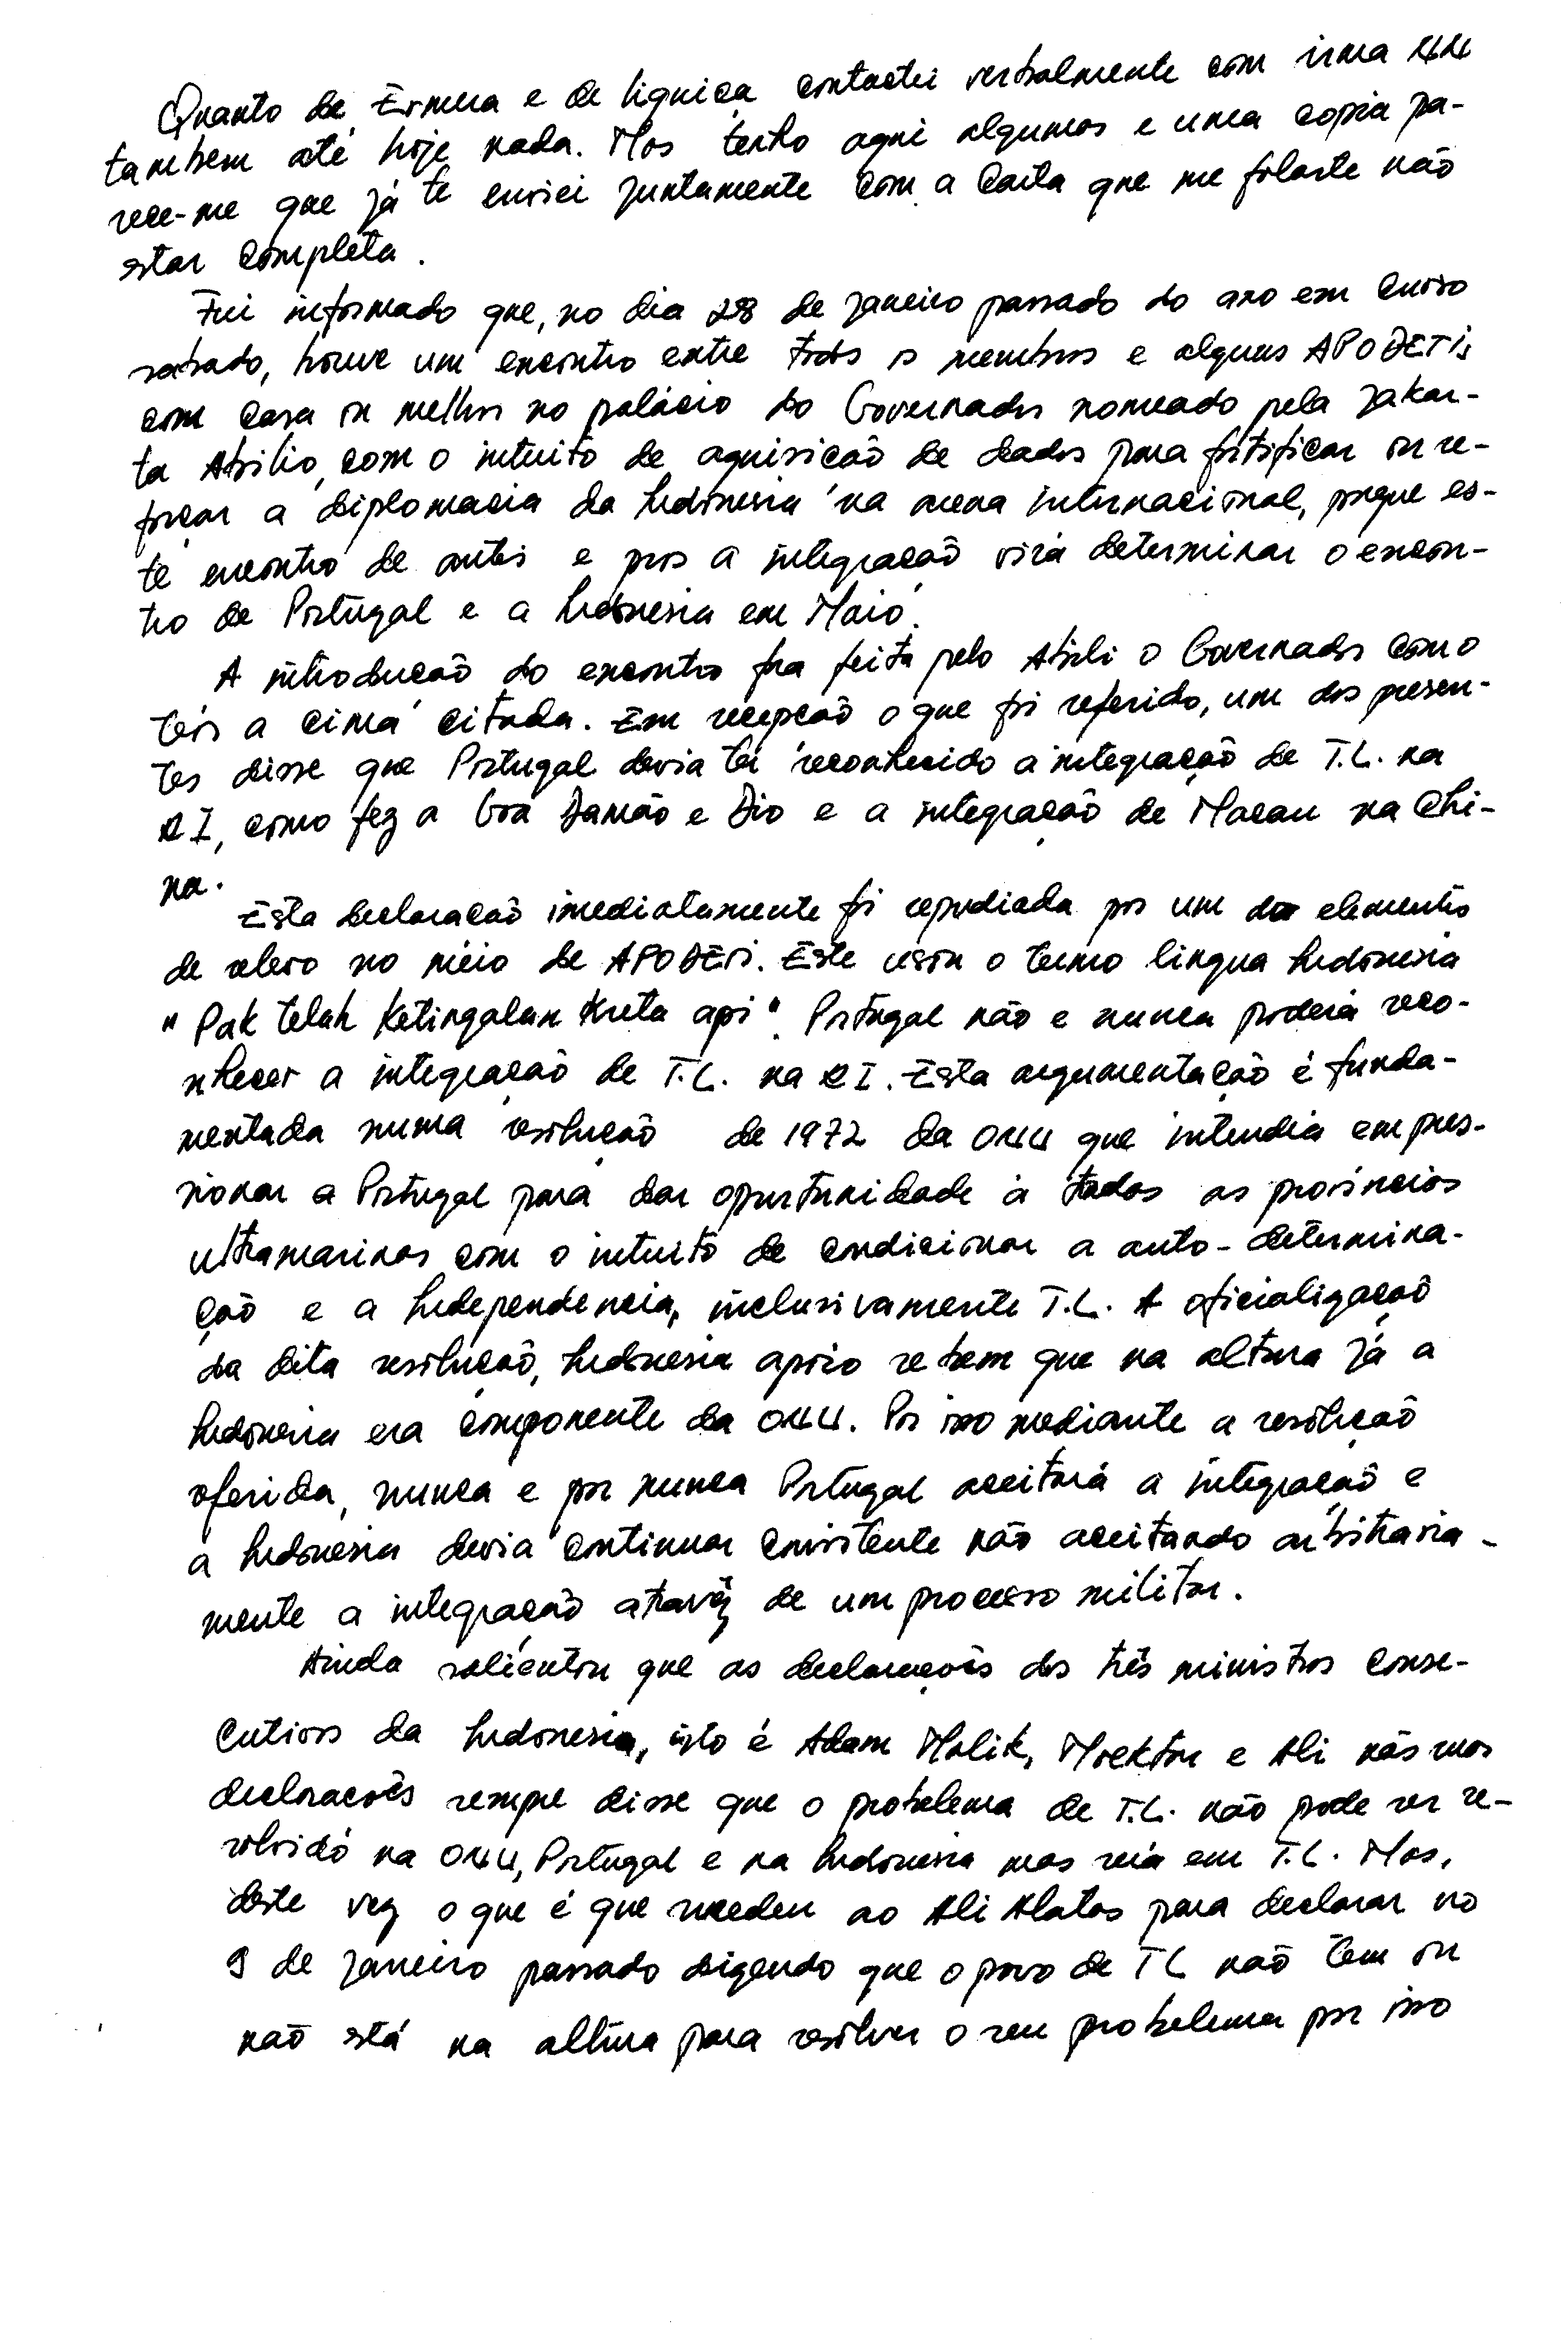 Quanto de Ermera e de liquiça contactei verbalmente com irma
tambem até hoje nada. Mas tenho aqui algumas e uma copia pa-
rece-me que já te enviei juntamente com a Carta que me falaste não
estar completa.
Fui informado que, no dia 28 de Janeiro passado do ano em curso
sabado, houve um encontro entre todos os membros e alguns APODETIs
com casa ou melhor no palácio do Governador nomeado pela Jakar-
ta Abilio, com o intuito de aquisicão de dados para fortificar ou re-
forçar a diplomacia da Indonesia na arena internacional, porque es-
te encontro de antis e pros a integração virá determinar o encon-
tro de Portugal e a Indonesia em Maio.
A introdução do encontro fora feita pelo Abili o Governador como
teôr a cima citada. Em recepcão o que foi referido, um dos presen-
tes disse que Portugal devia ter reconhecido a integração de T.L. na
RI, como fez a Goa Damão e Dio e a integração de Macau na Chi-
na.
Esta declaracão imediatamente foi repudiada por um dos elementos
de relevo no meio de APODETI. Este usou o termo lingua Indonesia
" Pak telah Ketingalan Kreta api ". Portugal não e nunca poderá reco-
nhecer a integração de T.L. na RI. Esta argumentação é funda-
mentada numa resolução de 1972 da ONU que intendia em pres-
sionar a Portugal para dar oportunidade à todas as provincias
ultramarinas com o intuito de condicionar a auto-determina-
ção e a Independencia, inclusivamente T.L. A oficialização
da dita resolução, Indonesia apoio se bem que na altura já a
Indonesia era componente da ONU. Por isso mediante a resolução
oferida, nunca e por nunca Portugal aceitará a integração e
a Indonesia devia continuar consistente não aceitando arbitraria-
mente a integração através de um processo militar.
Ainda salientou que as declarações dos três ministros conse-
cutivos da Indonesia, isto é Adam Malik, Moektar e Ali nas suas
declaracoês sempre disse que o probelema de T.L. não pode ser re-
solvido na ONU, Portugal e na Indonesia mas será em T.L. Mas,
deste vez o que é que sucedeu ao Ali Alatas para declarar no
9 de Janeiro passado dizendo que o povo de TL não tem ou
não está na altura para resolver o seu probelema por isso